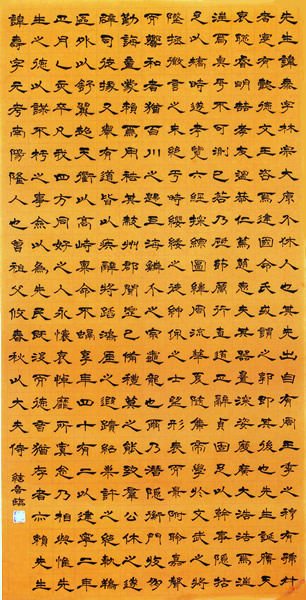 先生諱泰字林宗太原介休人也其先出自有周王季之穆有虢叔
者寔有懿德文王咨焉建國命氏或謂之郭即其後也先生誕應天
衷聰叡明哲孝友溫恭仁篤慈惠夫其器量弘深姿度廣大浩浩焉
汪汪焉奧乎不可測已若乃砥節厲行直道正辭貞固足以幹事隱括
足以矯時遂考覽六經探綜圖緯周流華夏隨集帝學收文武之將
墜拯微言之未絕于時纓緌之徒紳佩之士望形表而影附聆嘉聲
而響和者猶百川之歸巨海鱗介之宗龜龍也爾乃潛隱衡門收朋
勤誨童蒙賴焉用祛其蔽州郡聞德虛己備禮莫之能致羣公休之遂辟
司徒掾又舉有道皆以疾辭將蹈鴻涯之遐跡紹巢許之絕軌翔
區外以舒翼超天衢以高峙稟命不融享年四十有二以建寧二年
正月乙亥卒凡我四方同好之人永懷哀悼靡所寘念乃相與惟先
生之德以謀不朽之事僉以為先民既沒而德音猶存者亦賴先生
諱壽字元考南陽隆人也曾祖父攸春秋以大夫侍